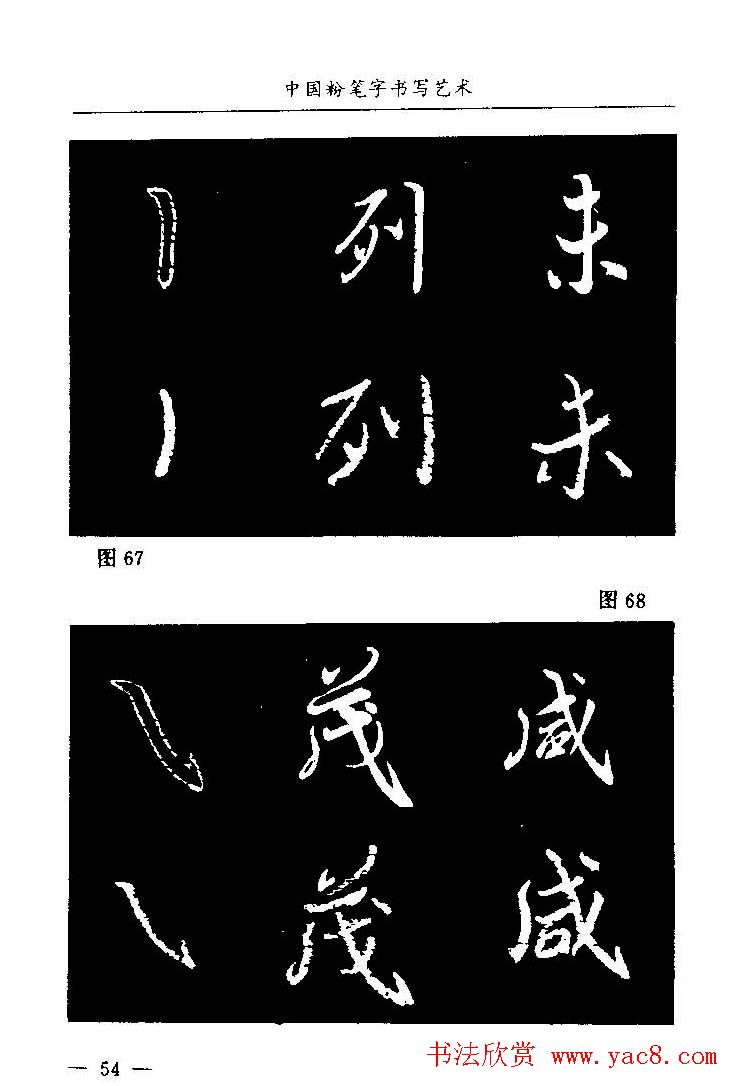 中国粉笔字书写艺术
列 未
列 未
图 67
图 68
茂 咸
茂 咸
— 54 —
书法欣赏 www.yac8.com